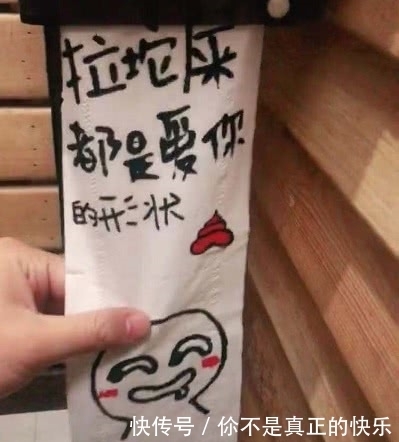 拉坨屎
都是爱你
的形状
快传号/你不是真正的快乐